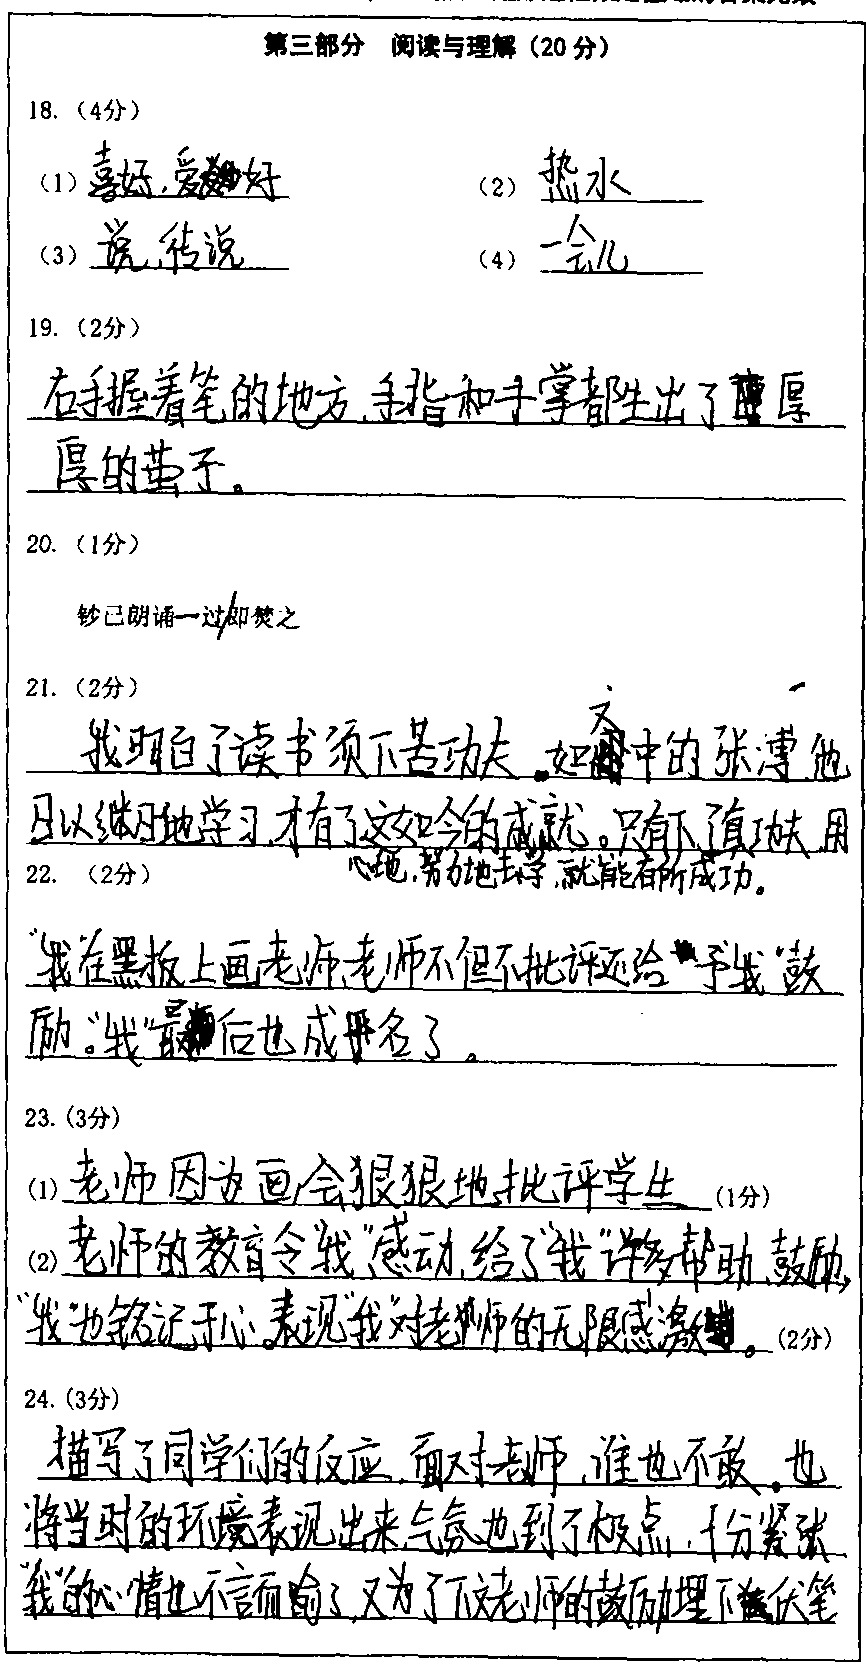 第三部分 阅读与理解（20分）
18.（4分）
（1）喜好，爱好
（2）热水
（3）说，传说
（4）一会儿
19.（2分）
右手握着笔的地方，手指和手掌都生出了厚
厚的茧子。
20.（1分）
钞已朗诵一过/即焚之
21.（2分）
我明白了读书须下苦功夫。如文中的张溥他
日以继日地学习，才有了这如今的成就。只有下了真功夫，用
心地，努力地去学，就能有所成功。
22.（2分）
“我”在黑板上画老师，老师不但不批评还给予“我”鼓
励。“我”最后也成名了。
23.(3分)
(1)老师因为画，会狠狠地批评学生(1分)
(2)老师的教育令“我”感动，给了“我”许多帮助，鼓励，
“我”也铭记于心。表现“我”对老师的无限感激。(2分)
24.(3分)
描写了同学们的反应，面对老师，谁也不敢。也
将当时的环境表现出来，气氛也到了极点，十分紧张
“我”的心情也不言而喻了，又为了下文老师的鼓励埋下伏笔